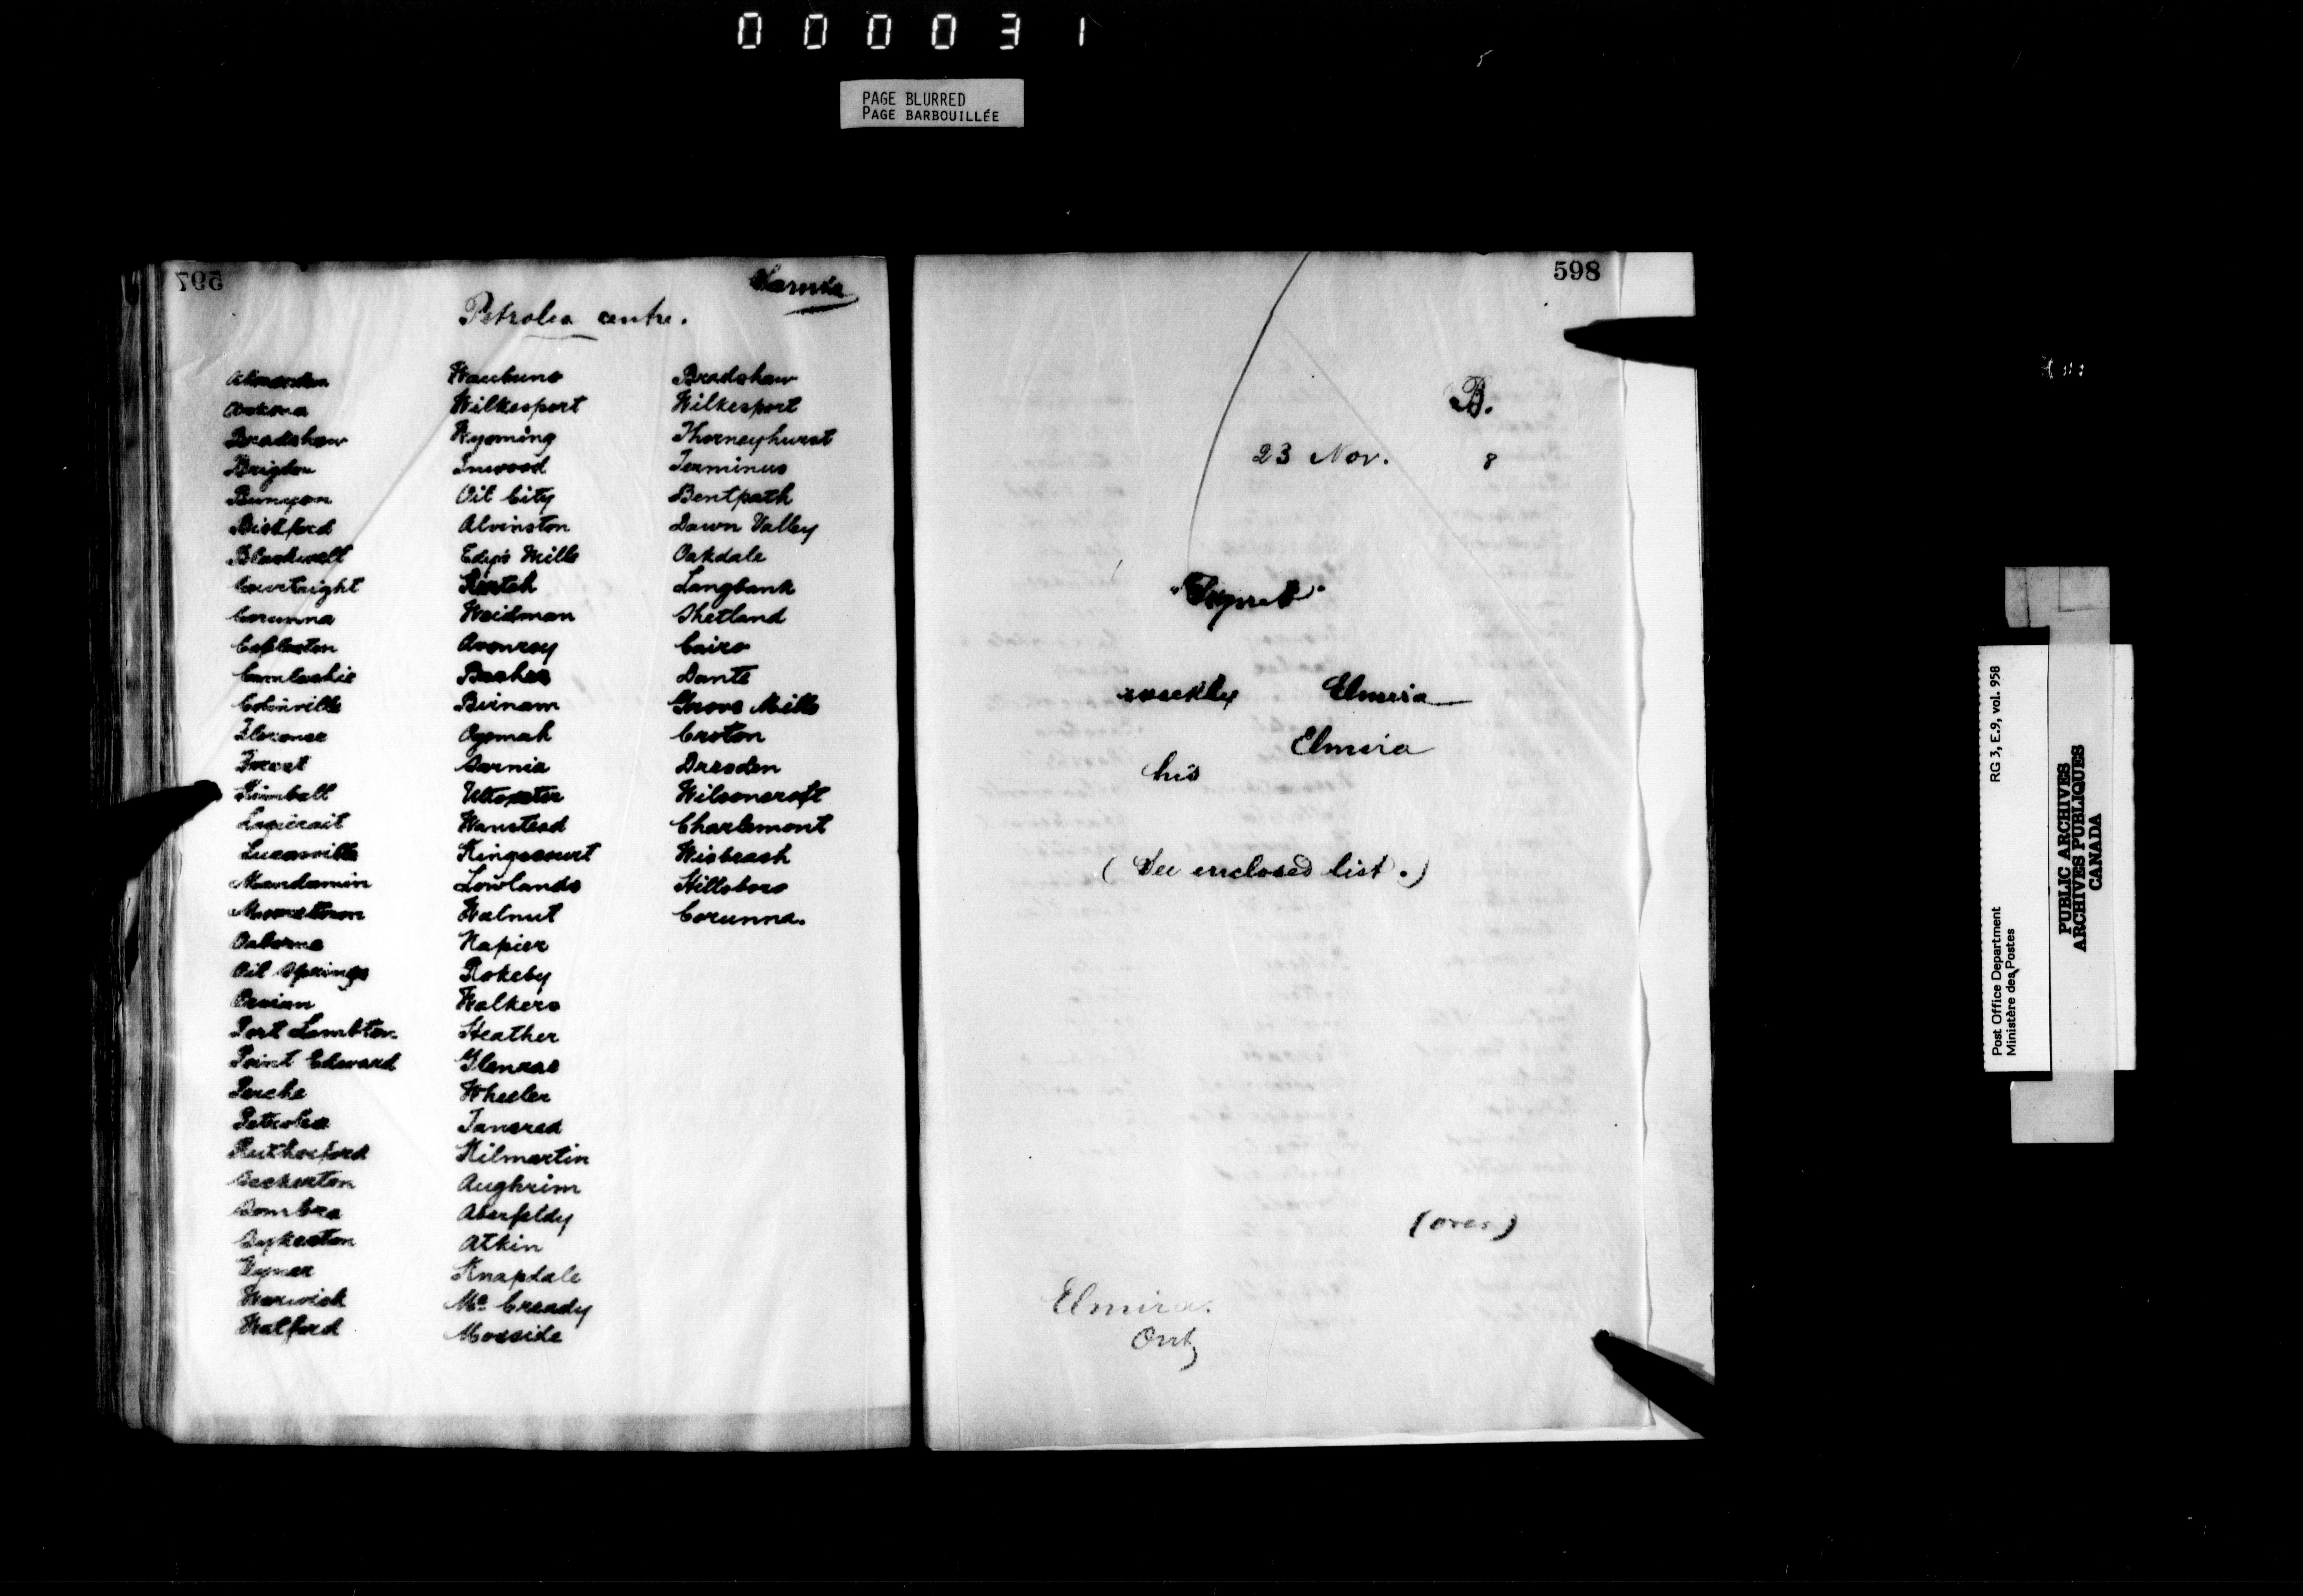 000031
PAGE BLURRED
PAGE BARBOUILLÉE
597
Sarnia
Petrolea centre.
Arkona
Bradshaw
Brigden
Bunyan
Bickford
Blackwell
Courtright
Corunna
Copleston
Camlachie
Colinville
Florence
Forest
Kimball
Logierait
Lucasville
Mandamin
Mooretown
Osborne
Oil Springs
Ossian
Port Lambton
Point Edward
Perche
Petrolea
Rutherford
Seckerton
Sombra
Sykeston
Vyner
Warwick
Watford
Waubuno
Wilkesport
Wyoming
Inwood
Oil City
Alvinston
Edy's Mills
Reetch
Weidman
Avonroy
Becher
Birnam
Ogemah
Sarnia
Uttoxeter
Wanstead
Kingscourt
Lowlands
Walnut
Napier
Rokeby
Walkers
Heather
Glenrae
Wheeler
Tancred
Kilmartin
Aughrim
Aberfeldy
Atkin
Knapdale
Mc Cready
Mosside
Bradshaw
Wilkesport
Thorneyhurst
Terminus
Bentpath
Dawn Valley
Oakdale
Langbank
Shetland
Cairo
Dante
Grove Mills
Croton
Dresden
Wilsoncroft
Charlemont
Wisbeach
Hillsboro
Corunna.
598
B.
23 Nov. 8
"Signet"
weekly Elmira
Elmira
his
(See enclosed list.)
(over)
Elmira.
Ont
Post Office Department
Ministère des Postes
RG 3, E.9, vol. 958
PUBLIC ARCHIVES
ARCHIVES PUBLIQUES
CANADA